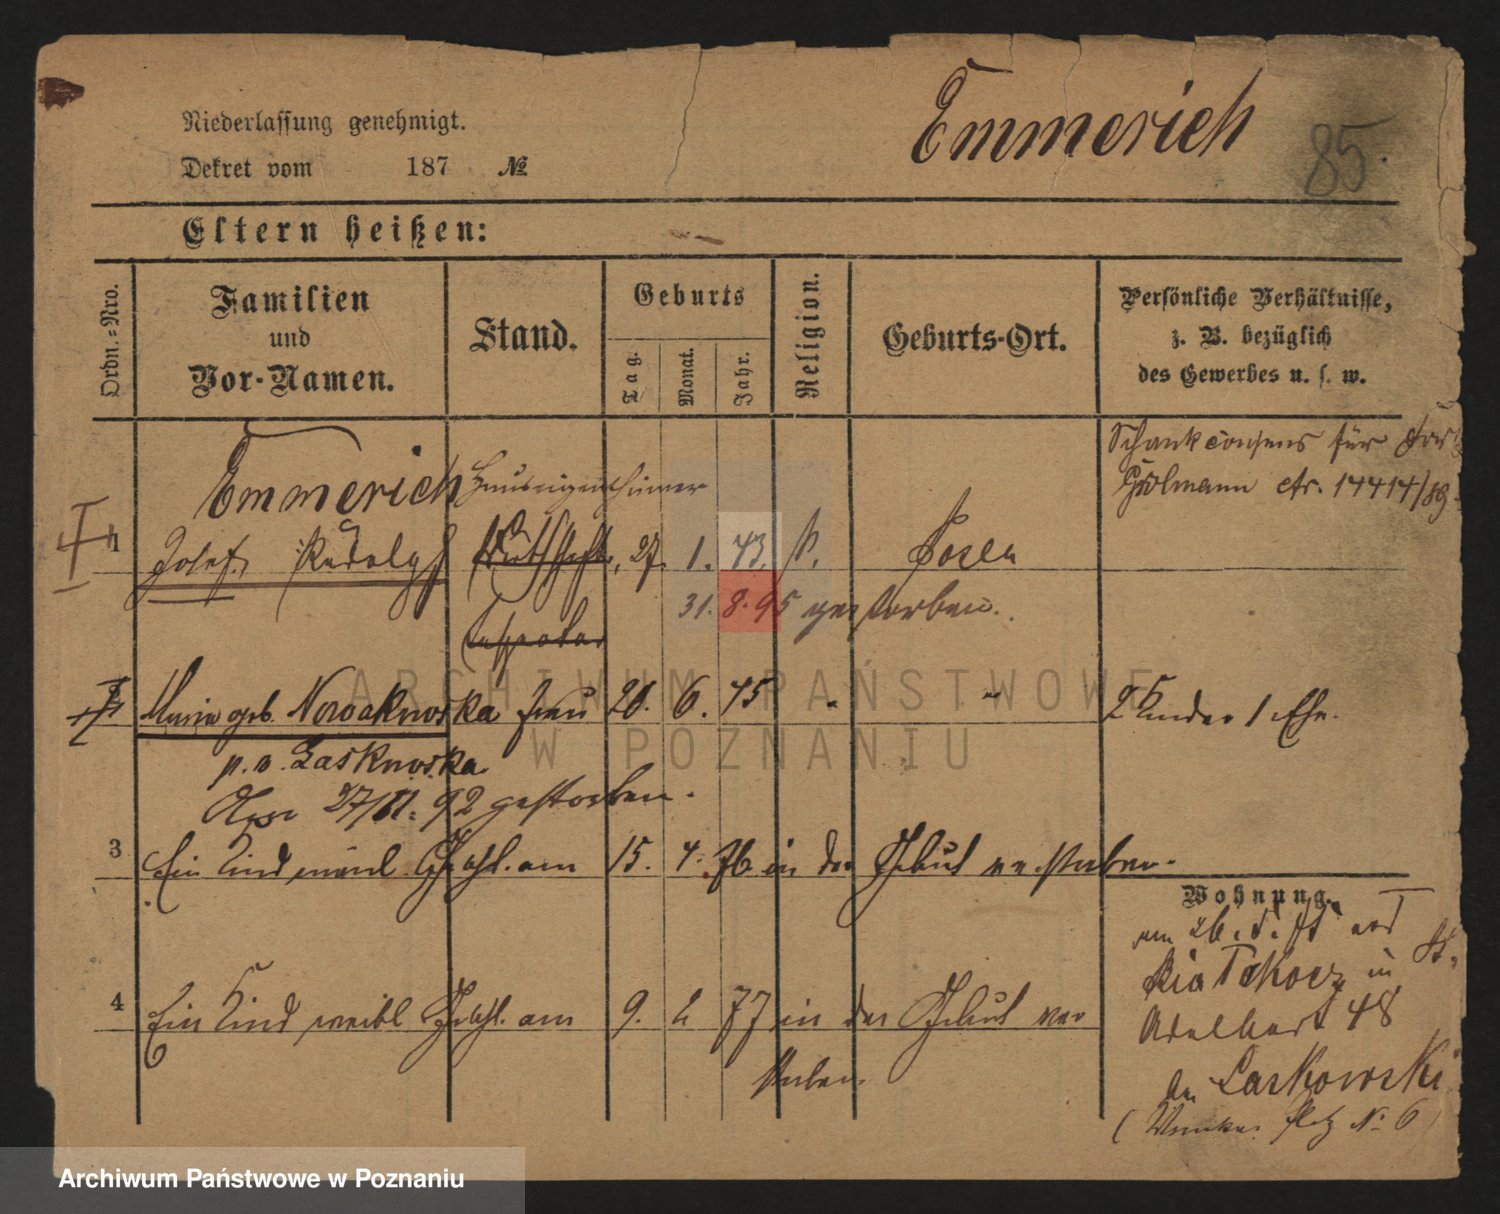 Emmerich
85.
Niederlassung genehmigt.
Dekret vom 187 №
Eltern heißen:
Ordn.-Nro.
Familien
und
Vor-Namen.
Stand.
Geburts
Tag.
Monat.
Jahr.
Religion.
Geburts-Ort.
Persönliche Verhältnisse,
z. B. bezüglich
des Gewerbes u. s. w.
Schankconsens für
Grolmann ctr. 14414/89
Emmerich Hauseigenthümer
1 Josef Rudolph 27. 1. 43. k. Posen
31. 8. 95 gestorben.
Maria geb. Nowakowska Frau 20. 6. 45 " " 2 Kinder 1 Ehe.
p. v. Laskowska
27/11. 92 gestorben.
3 Ein Kind männl. Geschl. am 15. 4. 76 in der Geburt verstorben.
Wohnung.
am 26.
Piatkocz in
Adelbert 48
4 Ein Kind weibl. Geschl. am 9. 2 77 in der Geburt ver
storben.
Laskowski
Platz № 6
ARCHIWUM PAŃSTWOWE
W POZNANIU
Archiwum Państwowe w Poznaniu